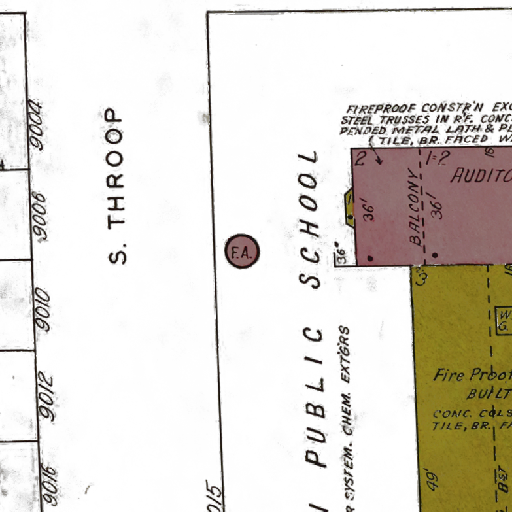 9004
9006
9010
9012
9016
S. THROOP
F.A.
PUBLIC SCHOOL
SYSTEM. CHEM. EXTGRS
FIREPROOF CONSTR'N
STEEL TRUSSES IN R.F. CONC.
PENDED METAL LATH &
TILE, BR. FACED
2
1=2
BALCONY
36'
36'
36"
3
Fire Proof
BUILT
CONC. COLS
TILE, BR.
49'